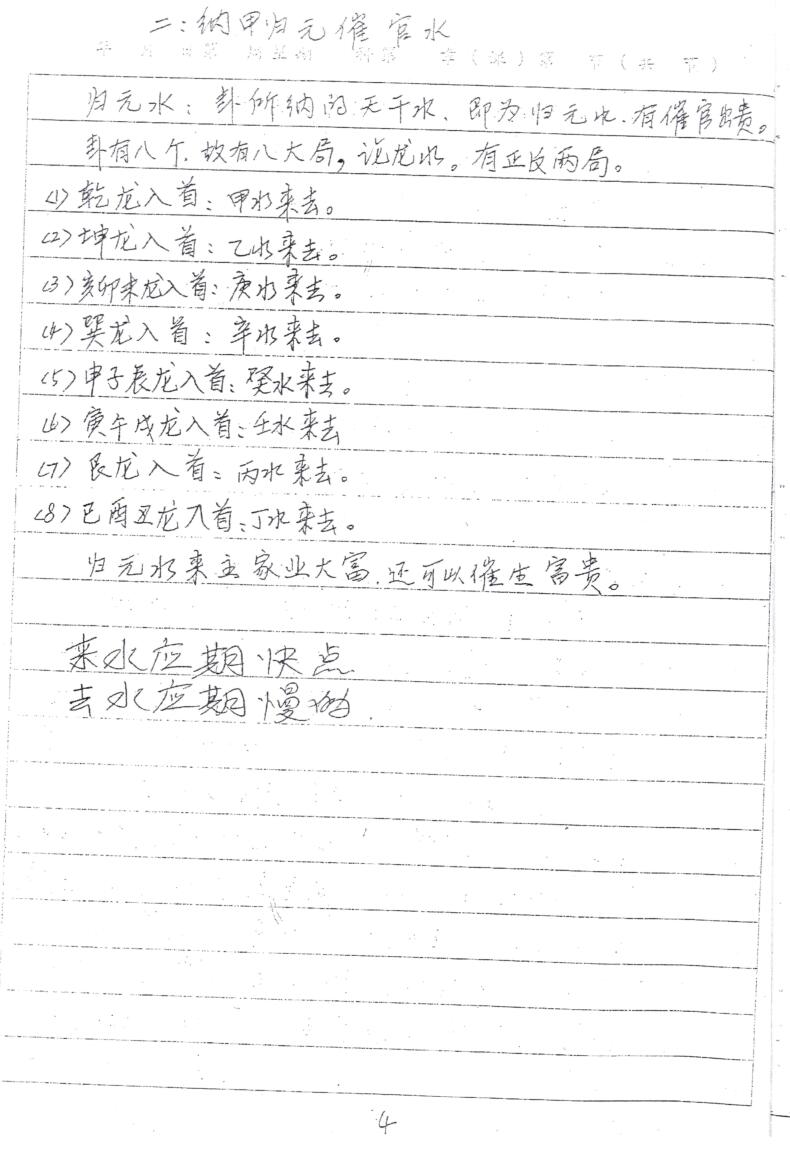 二：纳甲归元催官水
归元水：卦所纳的天干水、即为归元水.有催官出贵。
卦有八个.故有八大局，论龙水。有正反两局。
(1)乾龙入首：甲水来去。
(2)坤龙入首：乙水来去。
(3)亥卯未龙入首：庚水来去。
(4)巽龙入首：辛水来去。
(5)申子辰龙入首：癸水来去。
(6)寅午戌龙入首：壬水来去
(7)艮龙入首：丙水来去。
(8)巳酉丑龙入首：丁水来去。
归元水来主家业大富.还可以催生富贵。
来水应期快点
去水应期慢
4